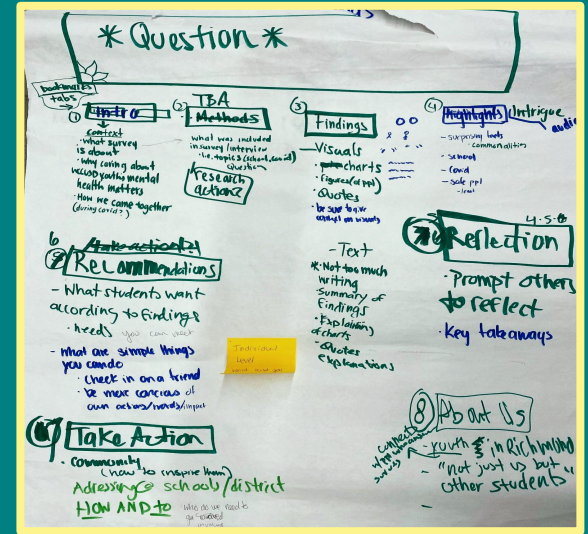 * Question *
bookmarks
tabs
① Intro
context
· what survey
is about
· Why caring about
WCCUSD youth's mental
health matters
· How we came together
(during covid?)
(2) TBA
Methods
what was included
in survey/interview
· i.e. topics (school, covid)
Question
research
actions
③ Findings
— Visuals
charts
· figures (of ppl)
· Quotes
· be sure to give
context on visuals
- Text
* Not too much
writing
· Summary of
Findings
· Explaining
of charts
· Quotes
explanations
(4) Highlights
Intrigue
audi
- surprising facts
- commonalities
- school
- covid
- safe ppl
6
Take action?!
Recommendations
- What students want
according to findings
· needs you can meet
- what are simple things
you can do
· check in on a friend
· be more concious of
own actions/words/impact
Individual
level
Take Action
· community
(how to inspire them)
Adressing @ schools/district
HOW AND to
who do we need to
4-5-6
Reflection
· Prompt others
to reflect
· Key takeaways
⑧ About Us
connect
- youth in Richmond
- "not just us but
other students"
-